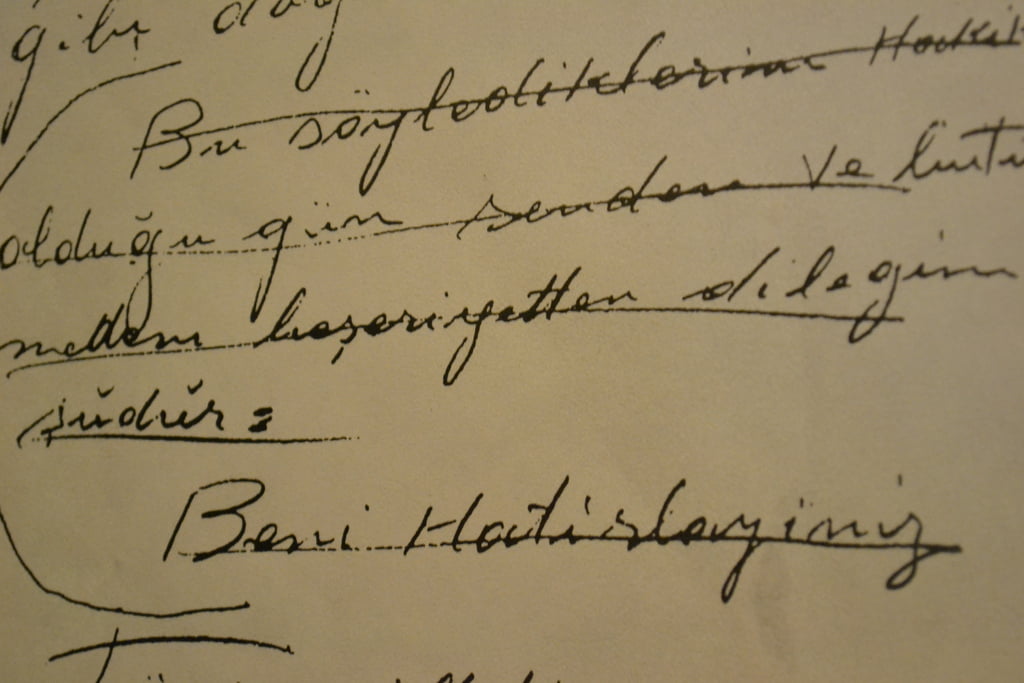 gibi
Bu söylediklerim Hakik
olduğu gün senden ve bütü
medeni beşeriyetten dileğim
şudur:
Beni Hatırlayınız